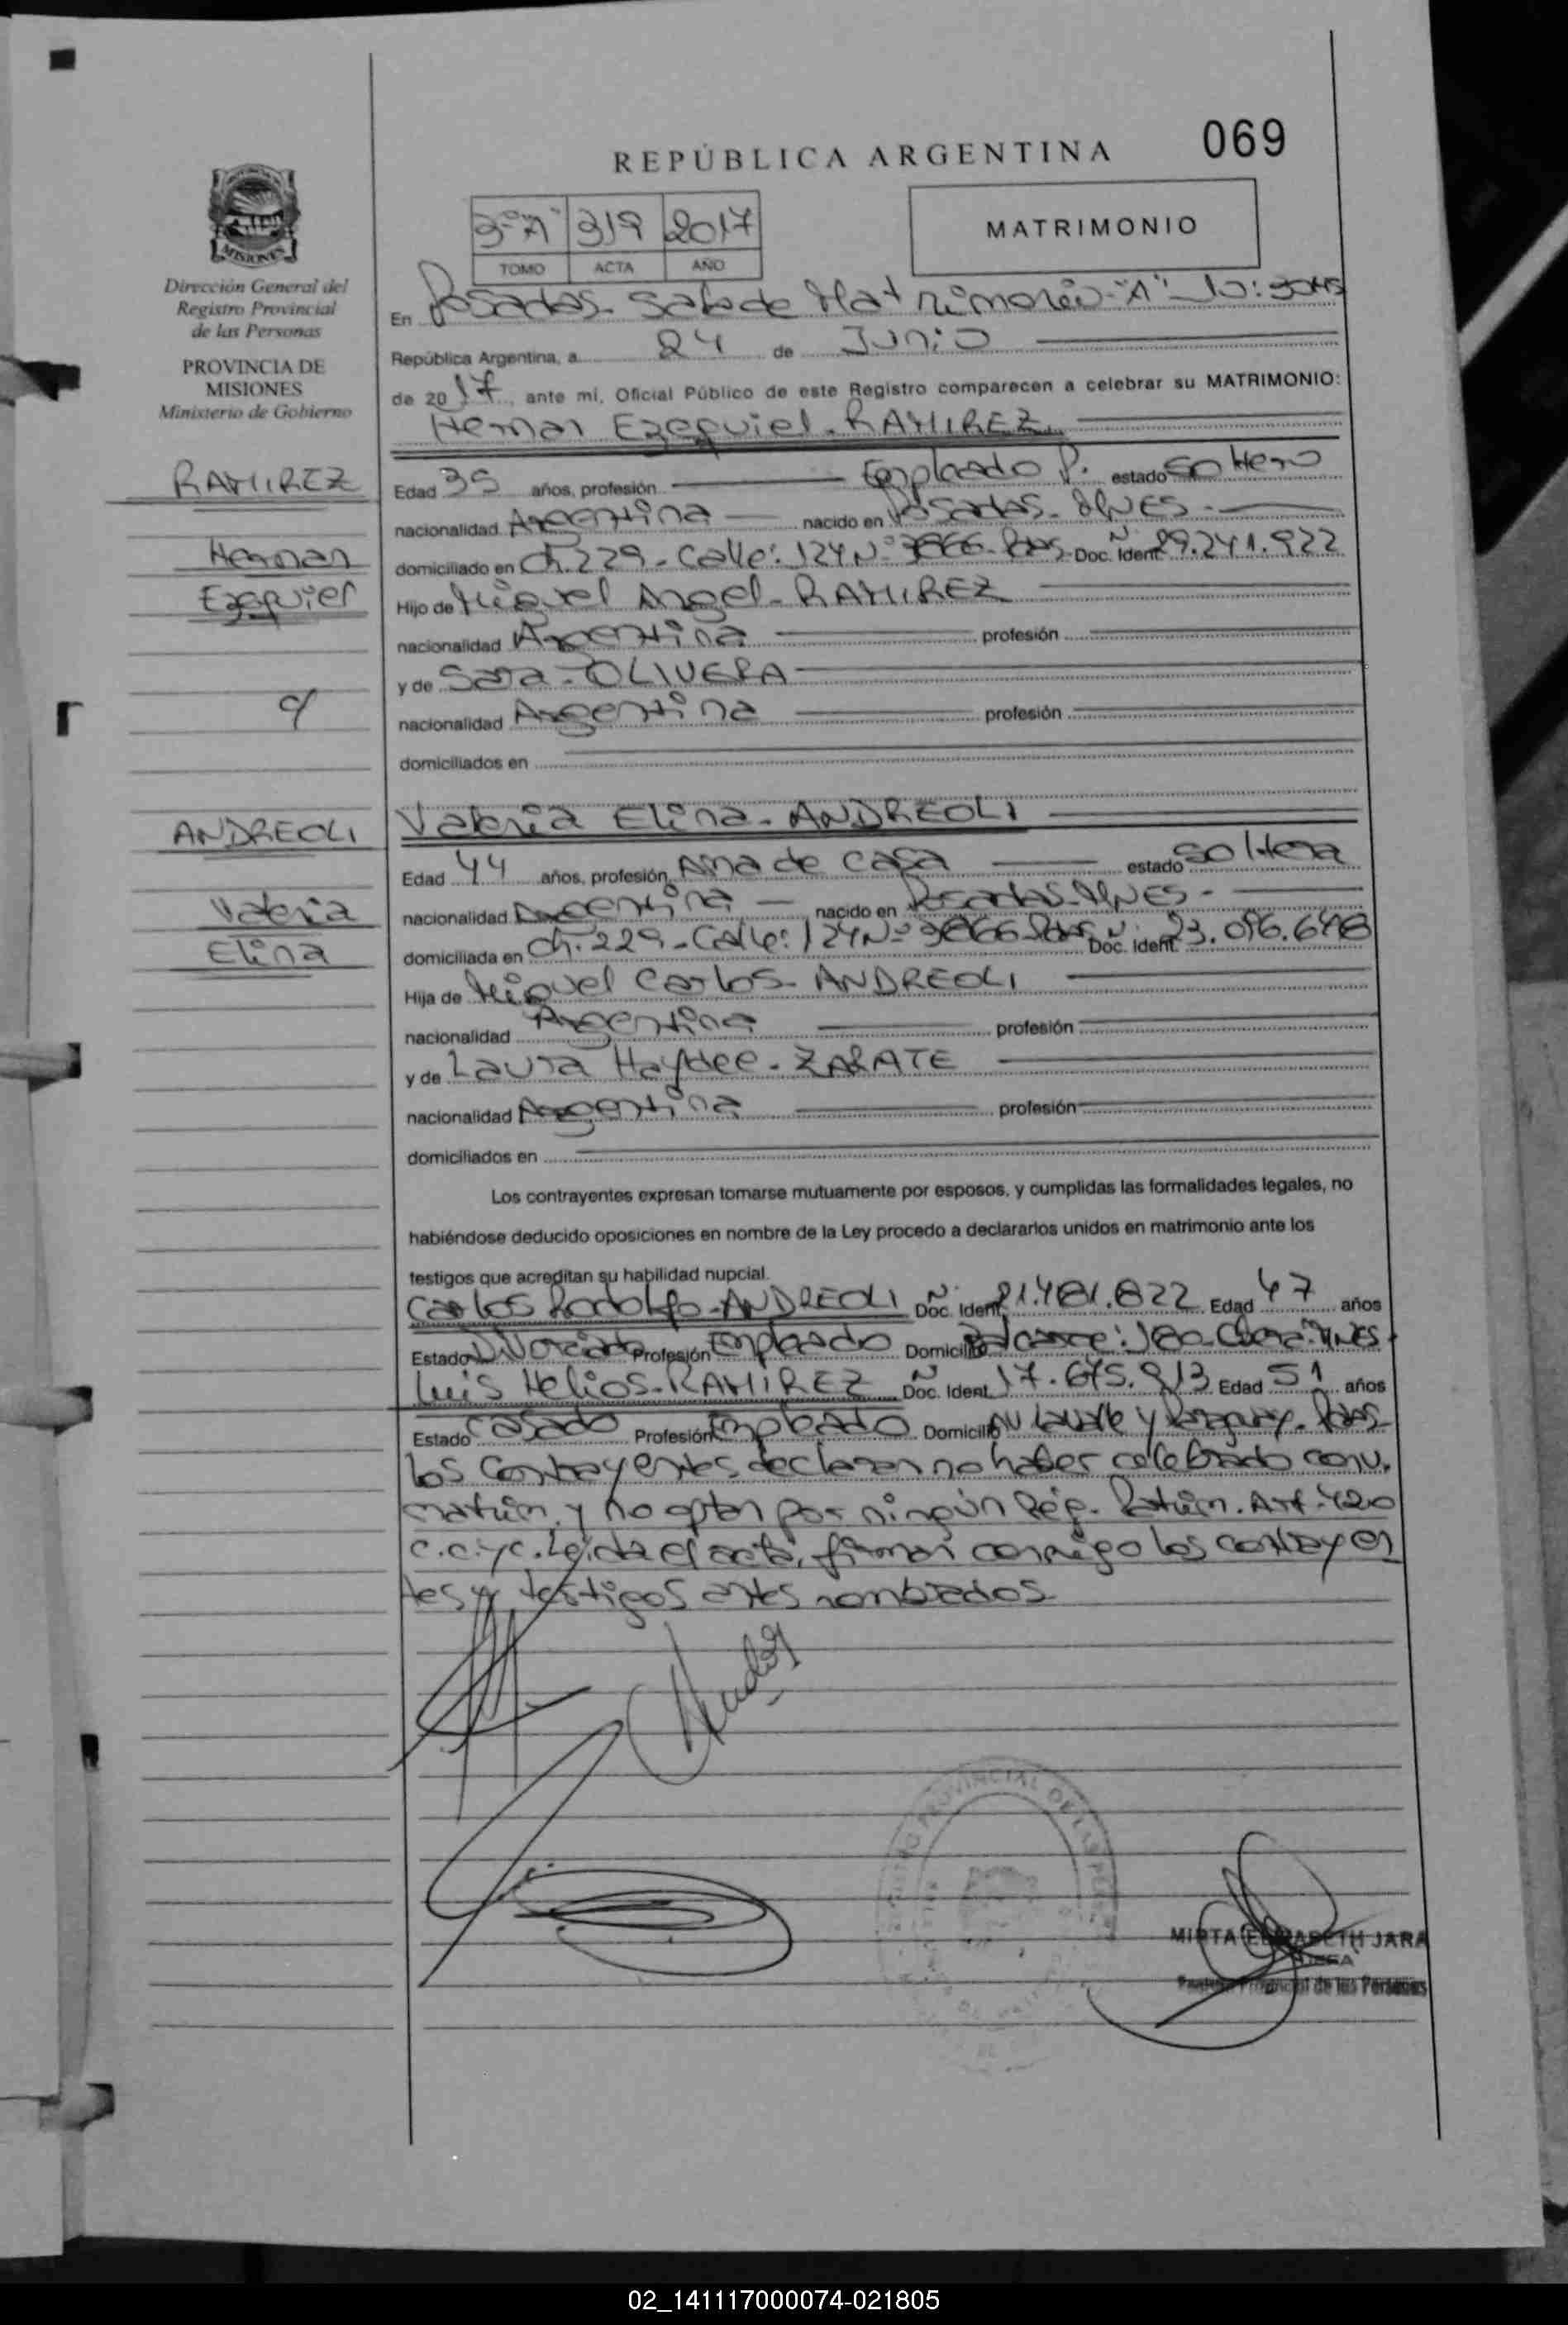 069
REPÚBLICA ARGENTINA
3º "A" 319 2017
TOMO ACTA AÑO
MATRIMONIO
MISIONES
Dirección General del
Registro Provincial
de las Personas
PROVINCIA DE
MISIONES
Ministerio de Gobierno
RAMIREZ
Hernan
Ezequiel
c/
ANDREOLI
Valeria
Elina
En Posadas - Sala de Matrimonio "A" - 10:30 hs
República Argentina, a 24 de Junio
de 2017, ante mí, Oficial Público de este Registro comparecen a celebrar su MATRIMONIO:
Hernan Ezequiel - RAMIREZ
Edad 35 años, profesión Empleado P. estado soltero
nacionalidad Argentina nacido en Posadas - Mnes -
domiciliado en Ch. 229 - Calle: 124 Nº Pdas - Doc. Ident. 29.241.922
Hijo de Miguel Angel - RAMIREZ
nacionalidad Argentina profesión
y de Sara - OLIVERA
nacionalidad Argentina profesión
domiciliados en
Valeria Elina - ANDREOLI
Edad 44 años, profesión Ama de casa estado soltera
nacionalidad Argentina nacido en Posadas - Mnes -
domiciliada en Ch. 229 - Calle: 124 Nº Pdas Doc. Ident. 23.096.648
Hija de Miguel Carlos - ANDREOLI
nacionalidad Argentina profesión
y de Laura Haydee - ZARATE
nacionalidad Argentina profesión
domiciliados en
Los contrayentes expresan tomarse mutuamente por esposos, y cumplidas las formalidades legales, no
habiéndose deducido oposiciones en nombre de la Ley procedo a declararlos unidos en matrimonio ante los
testigos que acreditan su habilidad nupcial.
Carlos Rodolfo - ANDREOLI Doc. Ident. 21.481.822 Edad 47 años
Estado Divorciado Profesión Empleado Domicilio Balcarce: 180 - Mnes -
Luis Helios - RAMIREZ Doc. Ident. 17.675.913 Edad 51 años
Estado Casado Profesión Empleado Domicilio Av Lavalle y Paraguay - Pdas -
los contrayentes declaran no haber celebrado conv.
matrim. y no optan por ningún Rég. Patrim. Art. 420
C.C.yC. Leída el acta, firman conmigo los contrayen
tes y testigos antes nombrados
PROVINCIAL DE LAS PER
MIRTA ELIZABETH JARA
Registro Provincial de las Personas
02_141117000074-021805